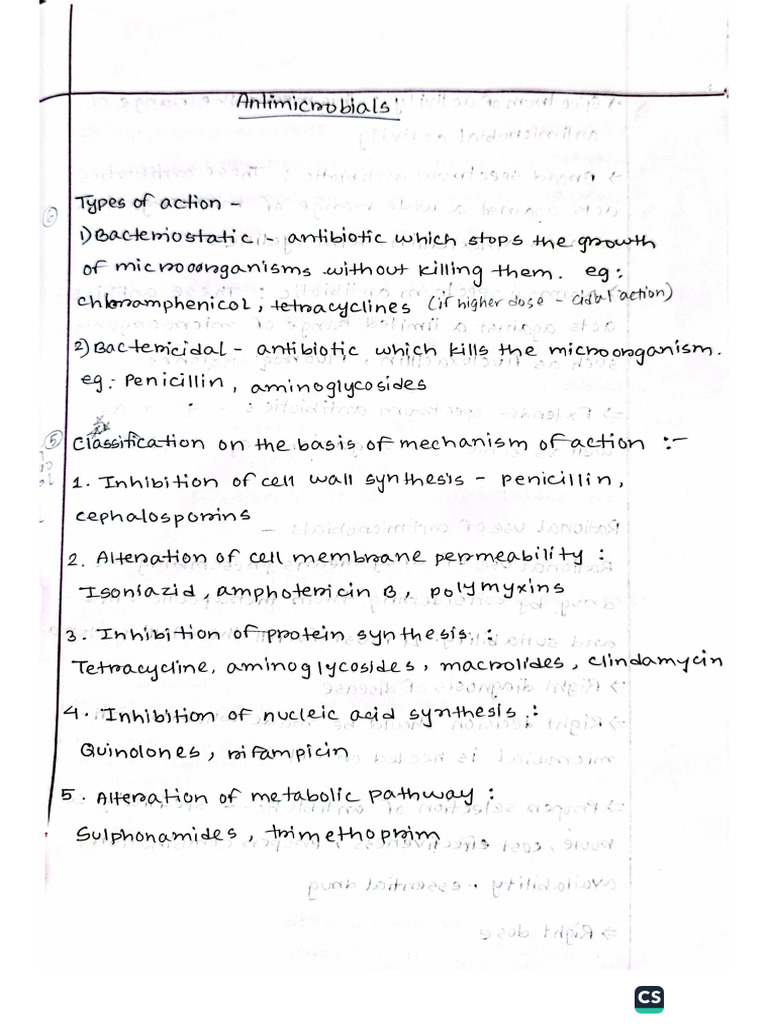 Antimicrobials:
6 Types of action -
1) Bacteriostatic - antibiotic which stops the growth
of microorganisms without killing them. eg:
chloramphenicol, tetracyclines (if higher dose - cidal action)
2) Bactericidal - antibiotic which kills the microorganism.
eg:- Penicillin, aminoglycosides
5 Classification on the basis of mechanism of action :-
1. Inhibition of cell wall synthesis - penicillin,
cephalosporins
2. Alteration of cell membrane permeability :
Isoniazid, amphotericin B, polymyxins
3. Inhibition of protein synthesis :
Tetracycline, aminoglycosides, macrolides, clindamycin
4. Inhibition of nucleic acid synthesis :
Quinolones, rifampicin
5. Alteration of metabolic pathway :
Sulphonamides, trimethoprim
CS